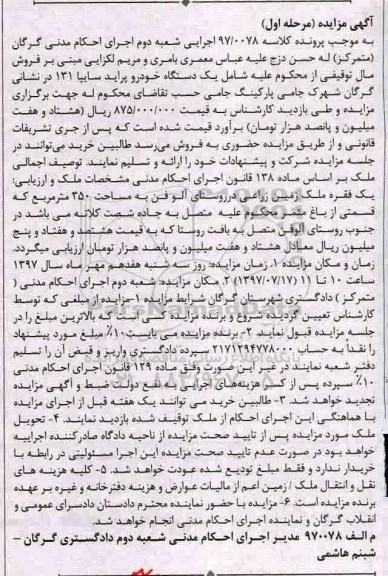 آگهی مزایده (مرحله اول)
به موجب پرونده کلاسه ۹۷/۰۰۷۸ اجرایی شعبه دوم اجرای احکام مدنی گرگان
(متمرکز) له حسن دزج علیه عباس معمری بامری و مریم لکزایی مبنی بر فروش
مال توقیفی از محکوم علیه شامل یک دستگاه خودرو پراید سایپا ۱۳۱ در نشانی
گرگان شهرک جامی پارکینگ جامی حسب تقاضای محکوم له جهت برگزاری
مزایده و طی بازدید کارشناس به قیمت ۸۷۵/۰۰۰/۰۰۰ ریال (هشتاد و هفت
میلیون و پانصد هزار تومان) برآورد قیمت شده است که پس از جری تشریفات
قانونی و از طریق مزایده حضوری به فروش می‌رسد طالبین خرید می‌توانند در
جلسه مزایده شرکت و پیشنهادات خود را ارائه و تسلیم نمایند. توصیف اجمالی
ملک بر اساس ماده ۱۳۸ قانون اجرای احکام مدنی مشخصات ملک و ارزیابی:
یک فقره ملک زمین زراعی در روستای آلو فن به مساحت ۳۵۰ مترمربع که
قسمتی از باغ مثمر محکوم علیه متصل به جاده شصت کلاته می باشد در
جنوب روستای آلوفن متصل به بافت روستا که به قیمت هشتصد و هفتاد و پنج
میلیون ریال معادل هشتاد و هفت میلیون و پانصد هزار تومان ارزیابی میگردد.
زمان و مکان مزایده ۱. زمان مزایده: روز سه شنبه هفدهم مهر ماه سال ۱۳۹۷
ساعت ۱۰ تا ۱۱ (۱۳۹۷/۰۷/۱۷) ۲. مکان مزایده: شعبه دوم اجرای احکام مدنی (
متمرکز) دادگستری شهرستان گرگان شرایط مزایده ۱-مزایده از مبلغی که توسط
کارشناس تعیین گردیده شروع و برنده مزایده کسی است که بالاترین مبلغ را در
جلسه مزایده قبول نماید. ۲- برنده مزایده می بایست ۱۰٪ مبلغ مورد پیشنهاد
را نقداً به حساب ۲۱۷۱۲۹۴۷۷۸۰۰۰ سپرده دادگستری واریز و قبض آن را تسلیم
دفتر شعبه نمایند در غیر این صورت وفق ماده ۱۲۹ قانون اجرای احکام مدنی
۱۰٪ سپرده پس از کسر هزینه‌های اجرایی به نفع دولت ضبط و آگهی مزایده
تجدید خواهد شد. ۳- طالبین خرید می توانند یک هفته قبل از اجرای مزایده
با هماهنگی این اجرای احکام از ملک توقیف شده بازدید نمایند. ۴- تحویل
ملک مورد مزایده پس از تایید صحت مزایده از ناحیه دادگاه صادرکننده اجراییه
خواهد بود در صورت عدم تایید صحت مزایده این اجرا مسئولیتی در رابطه با
خریدار ندارد و فقط مبلغ تودیع شده عودت خواهد شد. ۵- کلیه هزینه های
نقل و انتقال ملک / زمین اعم از مالیات عوارض و هزینه دفترخانه و غیره بر عهده
برنده مزایده است. ۶- مزایده با حضور نماینده محترم دادستان دادسرای عمومی و
انقلاب گرگان و نماینده اجرای احکام مدنی انجام خواهد شد.
م الف ۹۷۰۰۷۸ مدیر اجرای احکام مدنی شعبه دوم دادگستری گرگان –
شبنم هاشمی